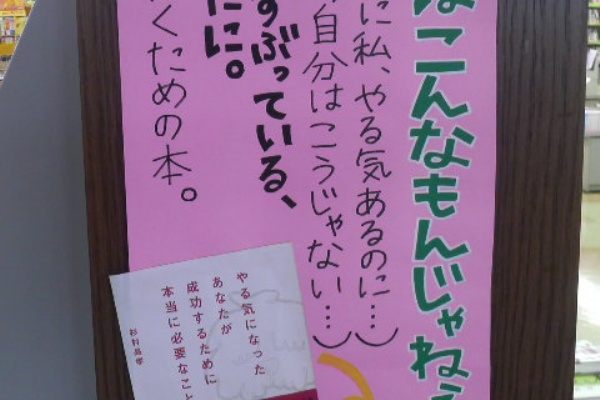 はこんなもんじゃねぇ
に私、やる気あるのに…
自分はこうじゃない…
すぶっている、
たに。
くための本。
やる気になった
あなたが
成功するために
本当に必要なこと